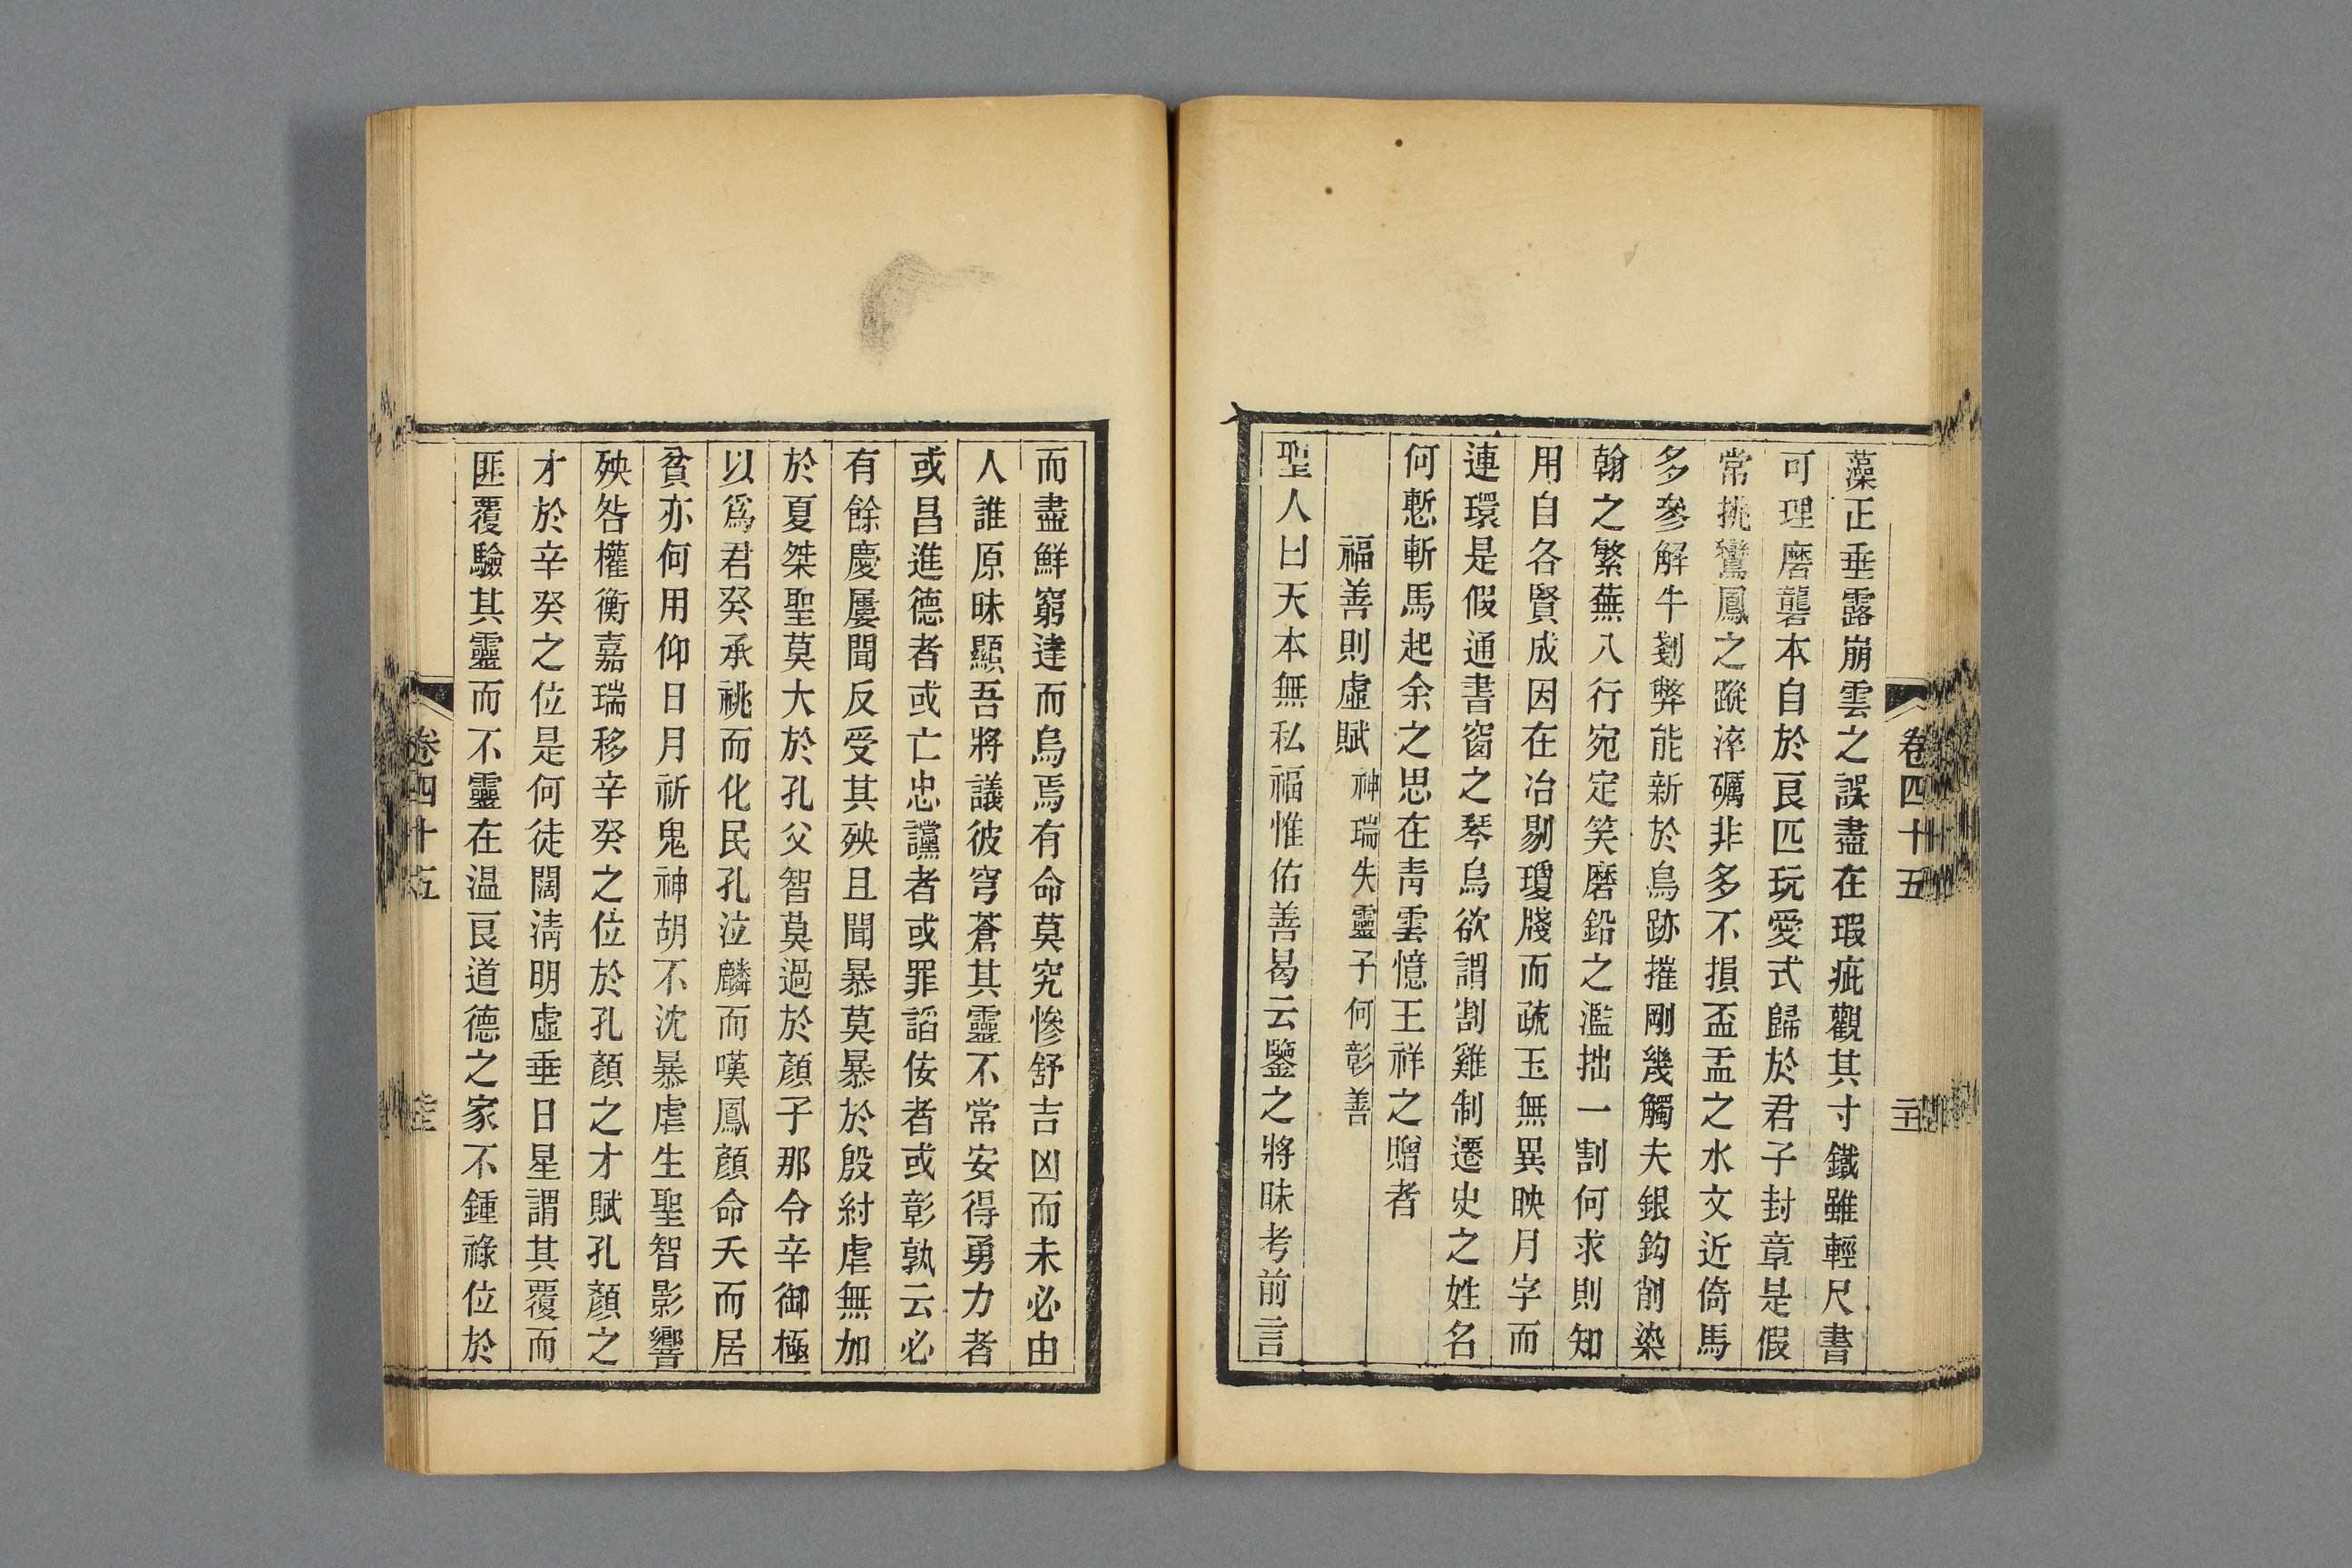 藻正垂露崩雲之誤盡在瑕疵觀其寸鐵雖輕尺書
可理磨礱本自於良匹玩愛式歸於君子封章是假
常挑鸞鳳之蹤淬礪非多不損盃盂之水文近倚馬
多參解牛剗弊能新於鳥跡摧剛幾觸夫銀鈎削染
翰之繁蕪八行宛定笑磨鉛之濫拙一割何求則知
用自各賢成因在冶剔瓊牋而疏玉無異映月字而
連環是假通書窗之琴烏欲謂割雞制遷史之姓名
何慙斬馬起余之思在靑雲憶王祥之贈者
福善則虛賦 神瑞失靈子何彰善
聖人曰天本無私福惟佑善曷云鑒之將昧考前言
而盡鮮窮達而烏焉有命莫究慘舒吉凶而未必由
人誰原昧顯吾將議彼穹蒼其靈不常安得勇力者
或昌進德者或亡忠讜者或罪諂佞者或彰孰云必
有餘慶屢聞反受其殃且聞暴莫暴於殷紂虐無加
於夏桀聖莫大於孔父智莫過於顏子那令辛御極
以爲君癸承祧而化民孔泣麟而嘆鳳顏命夭而居
貧亦何用仰日月祈鬼神胡不沈暴虐生聖智影響
殃咎權衡嘉瑞移辛癸之位於孔顏之才賦孔顏之
才於辛癸之位是何徒闊淸明虛垂日星謂其覆而
匪覆驗其靈而不靈在温良道德之家不鍾祿位於
卷四十五
卷四十五